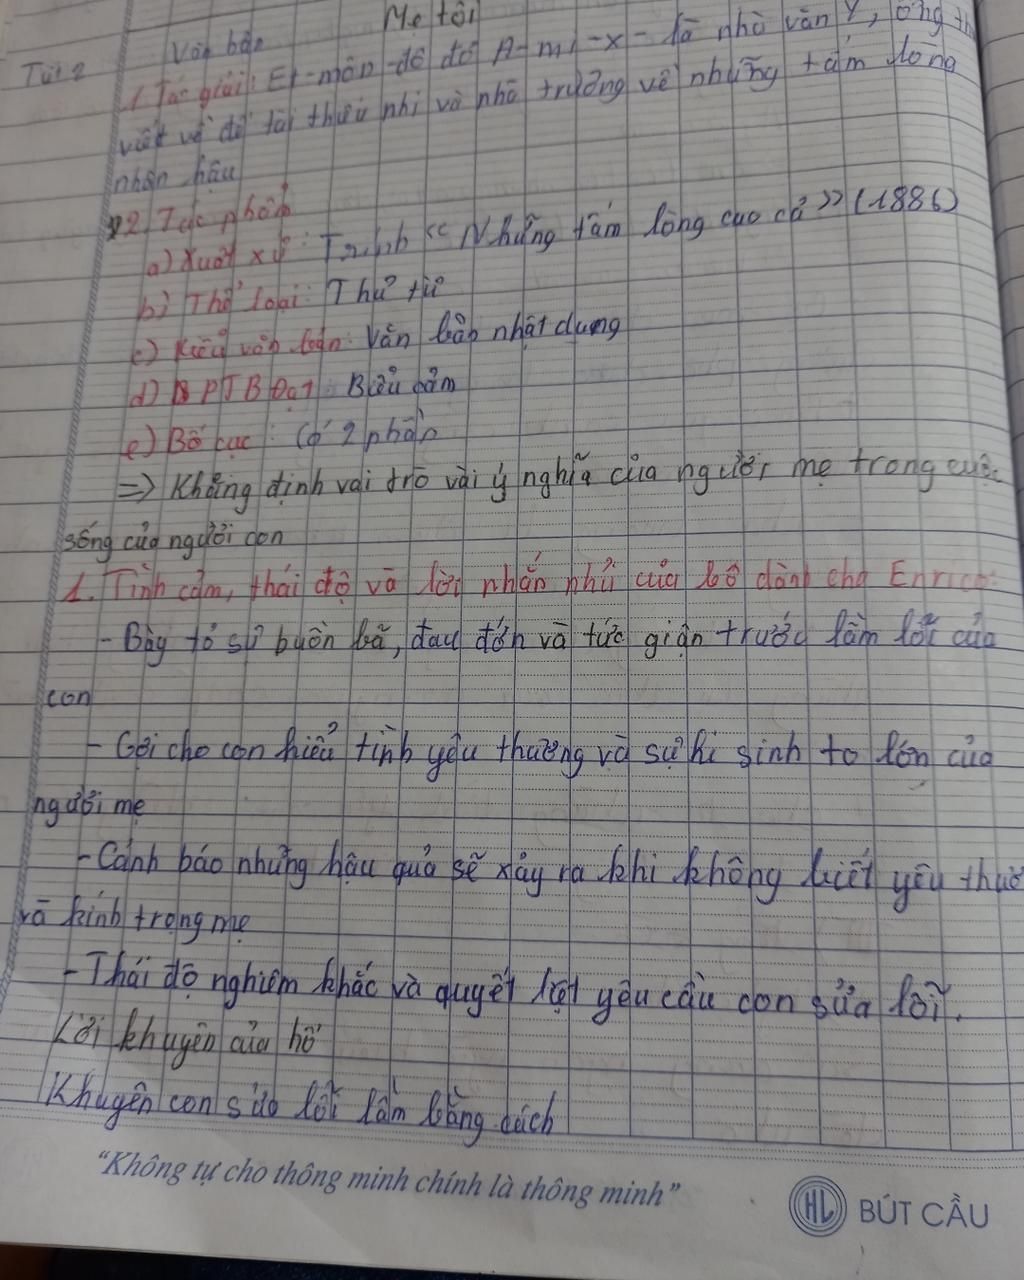 Mẹ tôi
Tiết 2 Văn bản
1. Tác giải: Et-môn-đô đố A-mi-x- là nhà văn Ý, ông th
viết về đề tài thiếu nhi và nhà trường về những tấm lòng
nhân hậu
2. Tác phẩm
a) Xuất xứ: Trích << Những tấm lòng cao cả >> (1886)
b) Thể loại: Thư từ
c) Kiểu văn bản: Văn bản nhật dụng
d) PTBĐạt: Biểu cảm
e) Bố cục: Có 2 phần
=> Khẳng định vai trò vài ý nghĩa của người mẹ trong cuộc
sống của người con
1. Tình cảm, thái độ và lời nhắn nhủ của bố dành cho Enrico:
- Bày tỏ sự buồn bã, đau đớn và tức giận trước lầm lỗi của
con
- Gợi cho con hiểu tình yêu thương và sự hi sinh to lớn của
người mẹ
- Cảnh báo những hậu quả sẽ xảy ra khi không biết yêu thươ
và kính trọng mẹ
- Thái độ nghiêm khắc và quyết liệt yêu cầu con sửa lỗi.
Lời khuyên của bố
Khuyên con sửa lỗi lầm bằng cách
"Không tự cho thông minh chính là thông minh"
HL BÚT CẦU